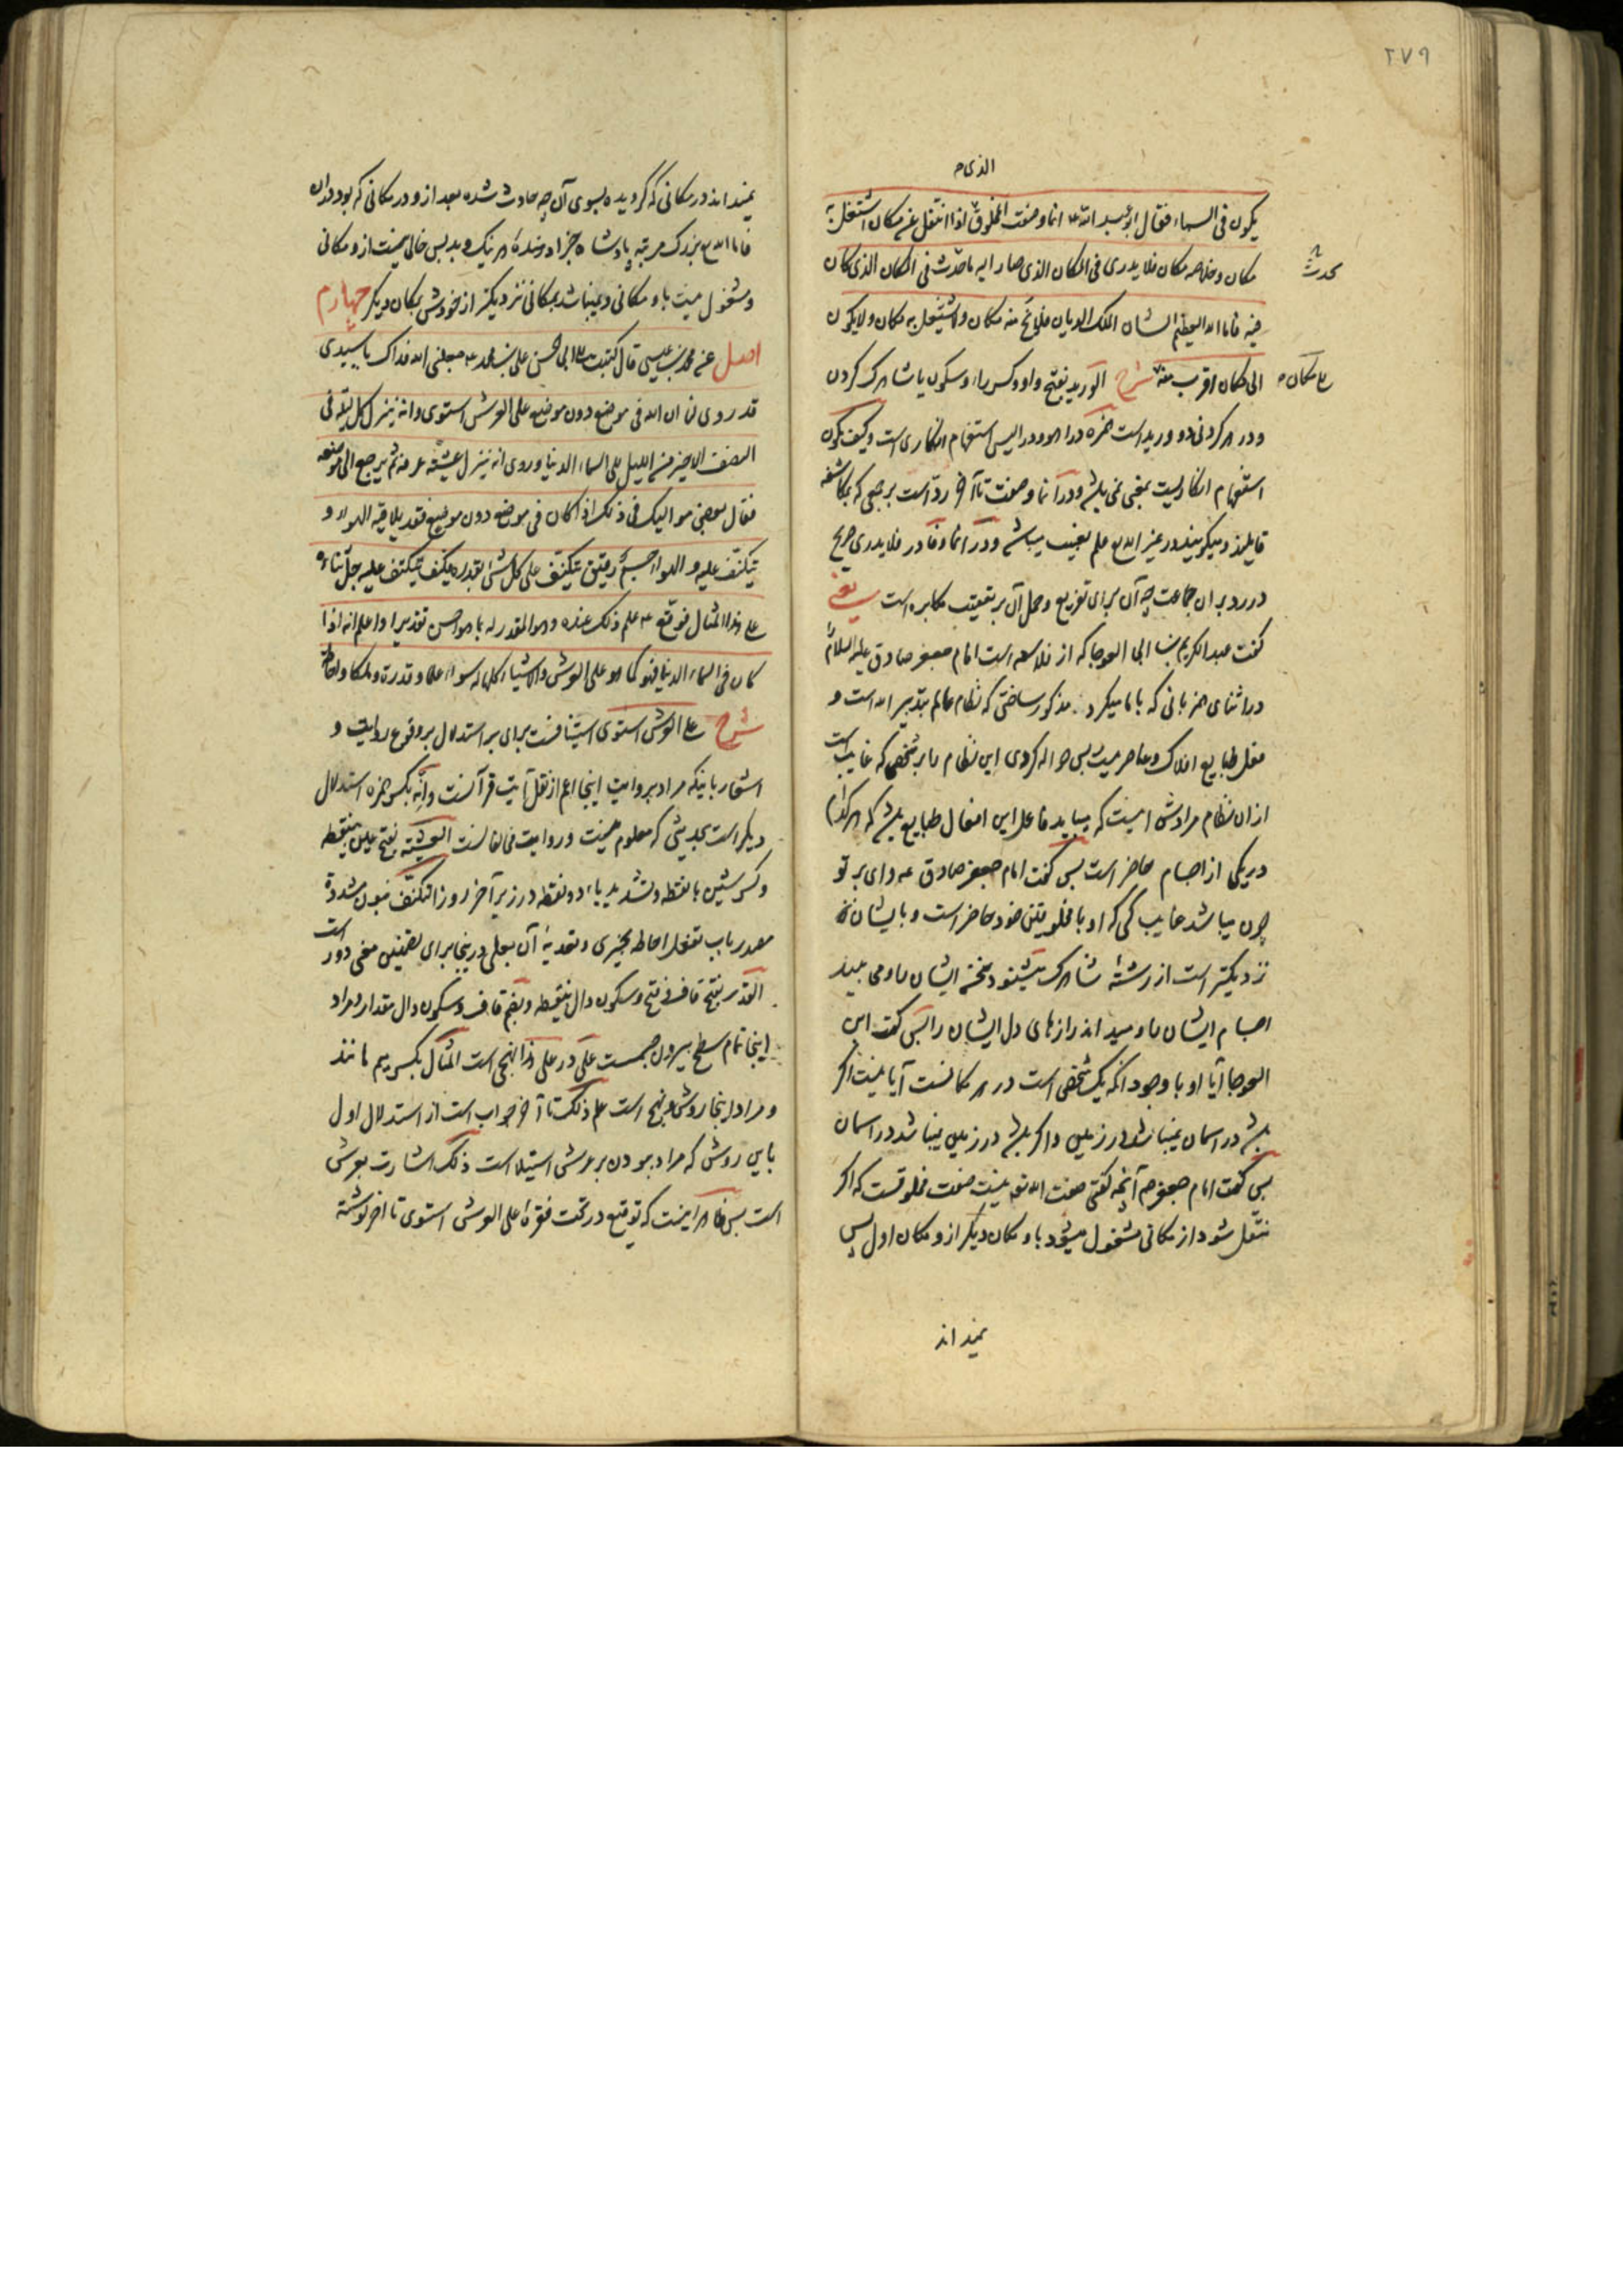 ۲۷۹
الذی م
یکون فی السماء فقال ابو عبد الله ع انما وصفت المخلوق اذا انتقل عن مکان اشتغل به
مکان و خلا منه مکان فلا یدری فی المکان الذی صار الیه ما حدث فی المکان الذی کان
یحدث
فیه فاما الله العظیم الشان الملک الدیان فلا یخلو منه مکان و لا یشتغل به مکان و لا یکون
الی مکان اقرب منه شرح الورید بفتح واو و کسر راء و سکون یا شاهرک گردن
الی مکان م
و در هر گردنی دو ورید است همزه در اهو و در الیس استفهام انکاری است و کیف یکون
استفهام انکاریست بمعنی نمی باشد و در انما وصفت تا آخر رد است بر جمعی که بمکاشفه
قایلند و میگویند در غیر الله تع علم بغیب میباشد و در انما و فا در فلا یدری صریح
در رد بر ان جماعت چه آن برای تفریع و حمل آن بر تعقیب مکابره است یعنی
گفت عبد الکریم بن ابی العوجا که از فلاسفه است امام جعفر صادق علیه السلام
در اثنای همزبانی که با ما میکرد مذکور ساختی که نظام عالم بتدبیر الله است و
فعل طبایع افلاک و عناصر نیست پس حواله کردی این نظام را بر شخصی که غایب است
ازان نظام مرادش اینست که میباید فاعل این افعال طبایع باشد که هر کدام
در یکی از اجسام حاضر است پس گفت امام جعفر صادق ع وای بر تو
چون میباشد غایب کسی که او با مخلوقین خود حاضر است و بایشان
نزدیکتر است از رشته شاهرک میشنود سخن ایشان را و می بیند
اجسام ایشان را و میداند رازهای دل ایشان را پس گفت ابن
العوجا آیا او با وجود انکه یک شخص است در هر مکانست آیا نیست اگر
باشد در اسمان نمیباشد در زمین و اگر باشد در زمین نمیباشد در اسمان
پس گفت امام جعفر ع آنچه گفتی صفت الله تع نیست صفت مخلوقست که اگر
منتقل شود از مکانی مشغول میشود باو مکان دیگر از و مکان اول پس
نمیداند
نمیداند در مکانی که گردیده بسوی آن چه حادث شده بعد از و در مکانی که بود دران
فاما الله تع بزرگ مرتبه پادشاه جزا دهنده هر نیک و بد پس خالی نیست از و مکانی
و مشغول نیست باو مکانی و نمیباشد بمکانی نزدیکتر از خودش بمکان دیگر چهارم
اصل عن محمد بن عیسی قال کتبت الی ابی الحسن علی بن محمد ع جعلنی الله فداک یا سیدی
قد روی لنا ان الله فی موضع دون موضع علی العرش استوی و انه ینزل کل لیلة فی
النصف الاخیر من اللیل الی السماء الدنیا و روی انه ینزل عشیة عرفة ثم یرجع الی موضعه
فقال بعض موالیک فی ذلک اذا کان فی موضع دون موضع فقد یلاقیه الهواء و
یتکنف علیه و الهواء جسم رقیق یتکنف علی کل شئ بقدره فکیف یتکنف علیه جل ثناؤه
علی هذا المثال فوقع ع علم ذلک عنده و هو المقدر له بما هو احسن تقدیرا و اعلم انه اذا
کان فی السماء الدنیا فهو کما هو علی العرش و الاشیاء کلها له سواء علما و قدرة و ملکا و احاطة
شرح علی العرش استوی استینافست برای بر استدلال بر وقوع روایت و
اشعار باینکه مراد بروایت اینجا اعم از نقل آیت قرآنست و انه بکسر همزه استدلال
دیگر است بحدیثی که معلوم نیست و روایت مخالفانست العشیة بفتح عین بینقطه
و کسر شین با نقطه و تشدید یاء دو نقطه در زیر آخر روز التکنف بنون مشدده
مصدر باب تفعل احاطه بچیزی و تعدیه آن بعلی درینجا برای تضمین معنی دور است
القدر بفتح قاف و فتح و سکون دال بینقطه و بضم قاف و سکون دال مقدار و مراد
اینجا تمام سطح بیرون جسمست علی در علی هذا نهجی است المثال بکسر میم مانند
و مراد اینجا روش و نهج است علم ذلک تا آخر جواب است از استدلال اول
باین روش که مراد بودن بر عرش استیلا است ذلک اشارت بعرش
است پس ظاهر اینست که توقیع در تحت فقره علی العرش استوی تا اخر نوشته